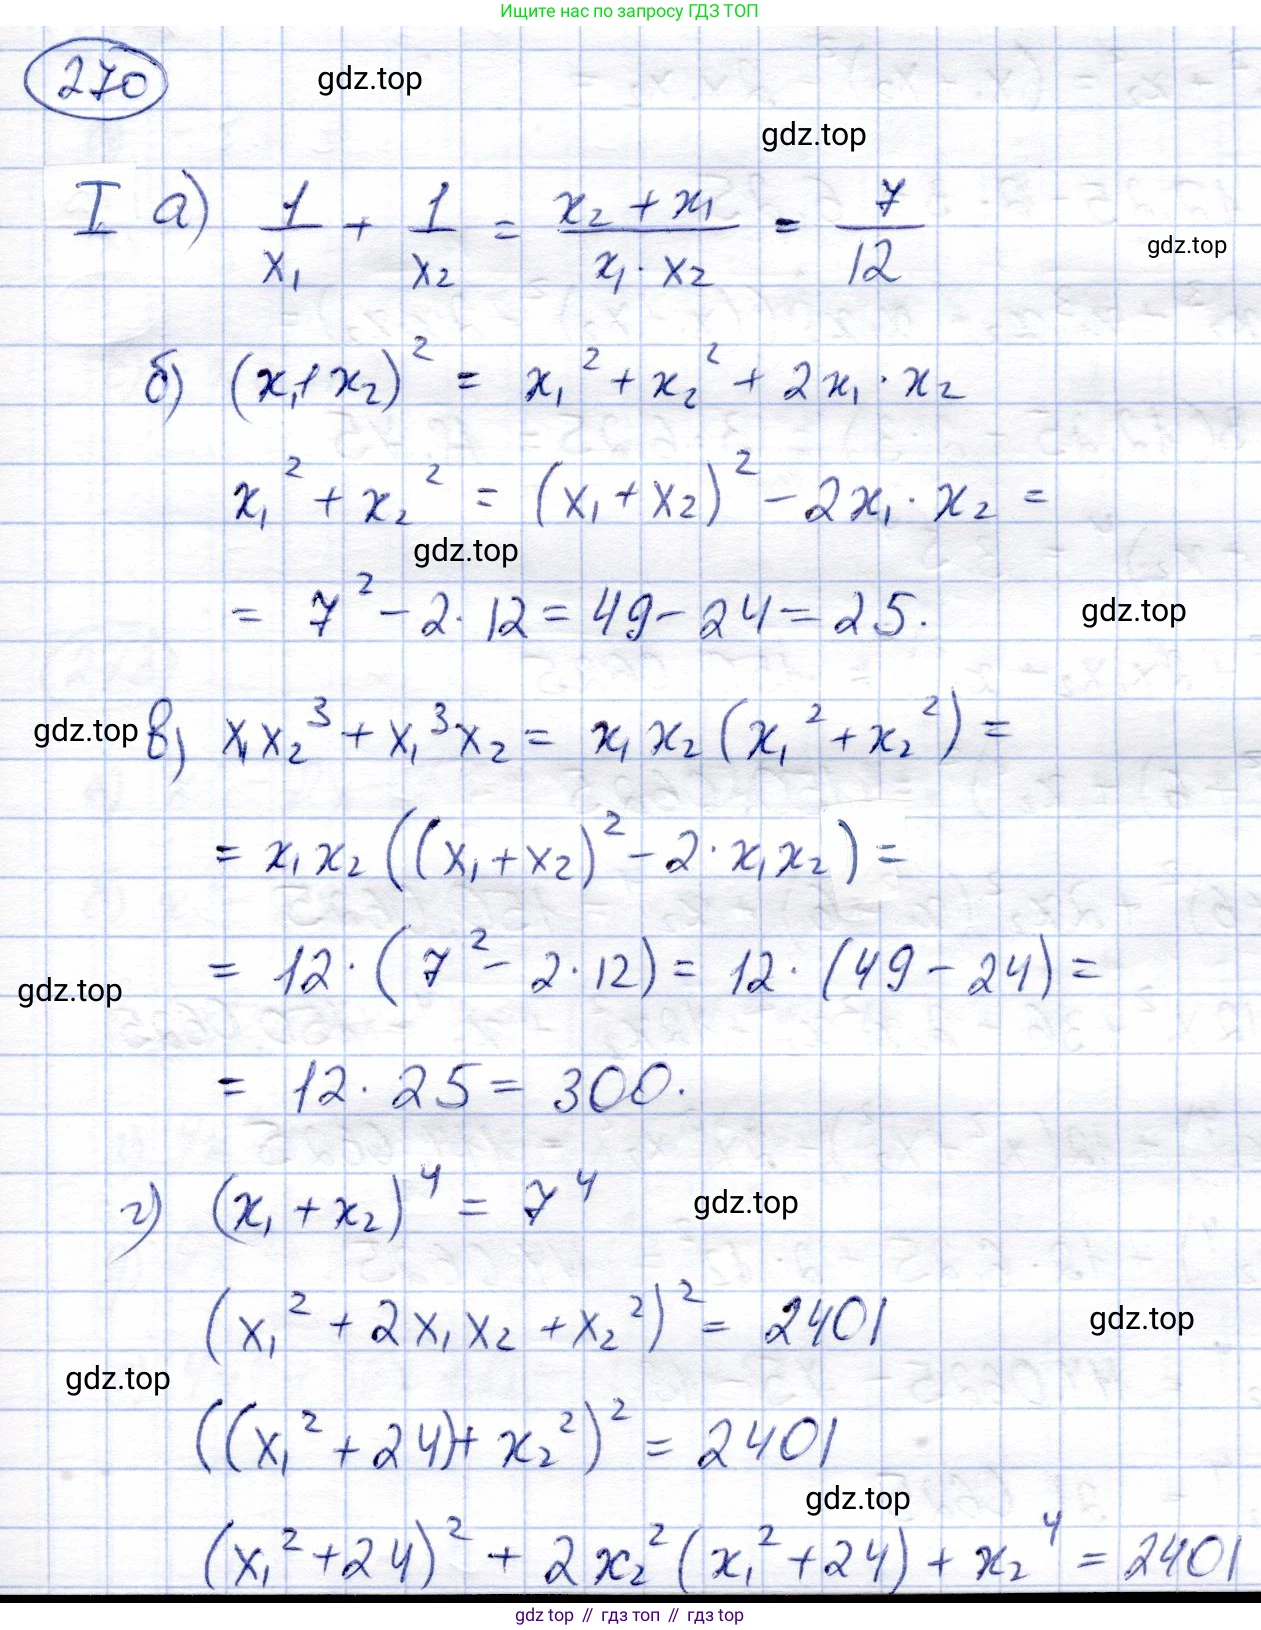 Ищите нас по запросу ГДЗ ТОП
270
gdz.top
gdz.top
I а) 1/x₁ + 1/x₂ = (x₂ + x₁)/(x₁ · x₂) = 7/12
gdz.top
б) (x₁+x₂)² = x₁² + x₂² + 2x₁ · x₂
x₁² + x₂² = (x₁ + x₂)² - 2x₁ · x₂ =
gdz.top
= 7² - 2 · 12 = 49 - 24 = 25.
gdz.top
gdz.top
в) x₁x₂³ + x₁³x₂ = x₁x₂(x₁² + x₂²) =
= x₁x₂((x₁ + x₂)² - 2 · x₁x₂) =
= 12 · (7² - 2 · 12) = 12 · (49 - 24) =
gdz.top
= 12 · 25 = 300.
г) (x₁ + x₂)⁴ = 7⁴
gdz.top
(x₁² + 2x₁x₂ + x₂²)² = 2401
gdz.top
gdz.top
((x₁² + 24) + x₂²)² = 2401
gdz.top
(x₁² + 24)² + 2x₂²(x₁² + 24) + x₂⁴ = 2401
gdz top // гдз топ // gdz top